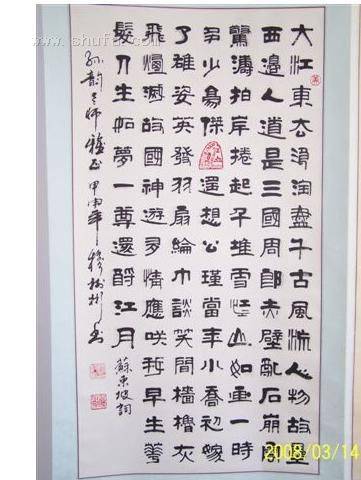 大江東去浪淘盡千古風流人物故壘
西邊人道是三國周郎赤壁亂石崩雲
驚濤拍岸捲起千堆雪江山如畫一時
多少豪傑遥想公瑾當年小喬初嫁
了雄姿英發羽扇綸巾談笑間檣櫓灰
飛煙滅故國神遊多情應咲我早生華
髮人生如夢一尊還酹江月
蘇東坡詞
韵老师雅正 甲申年
2008/03/14